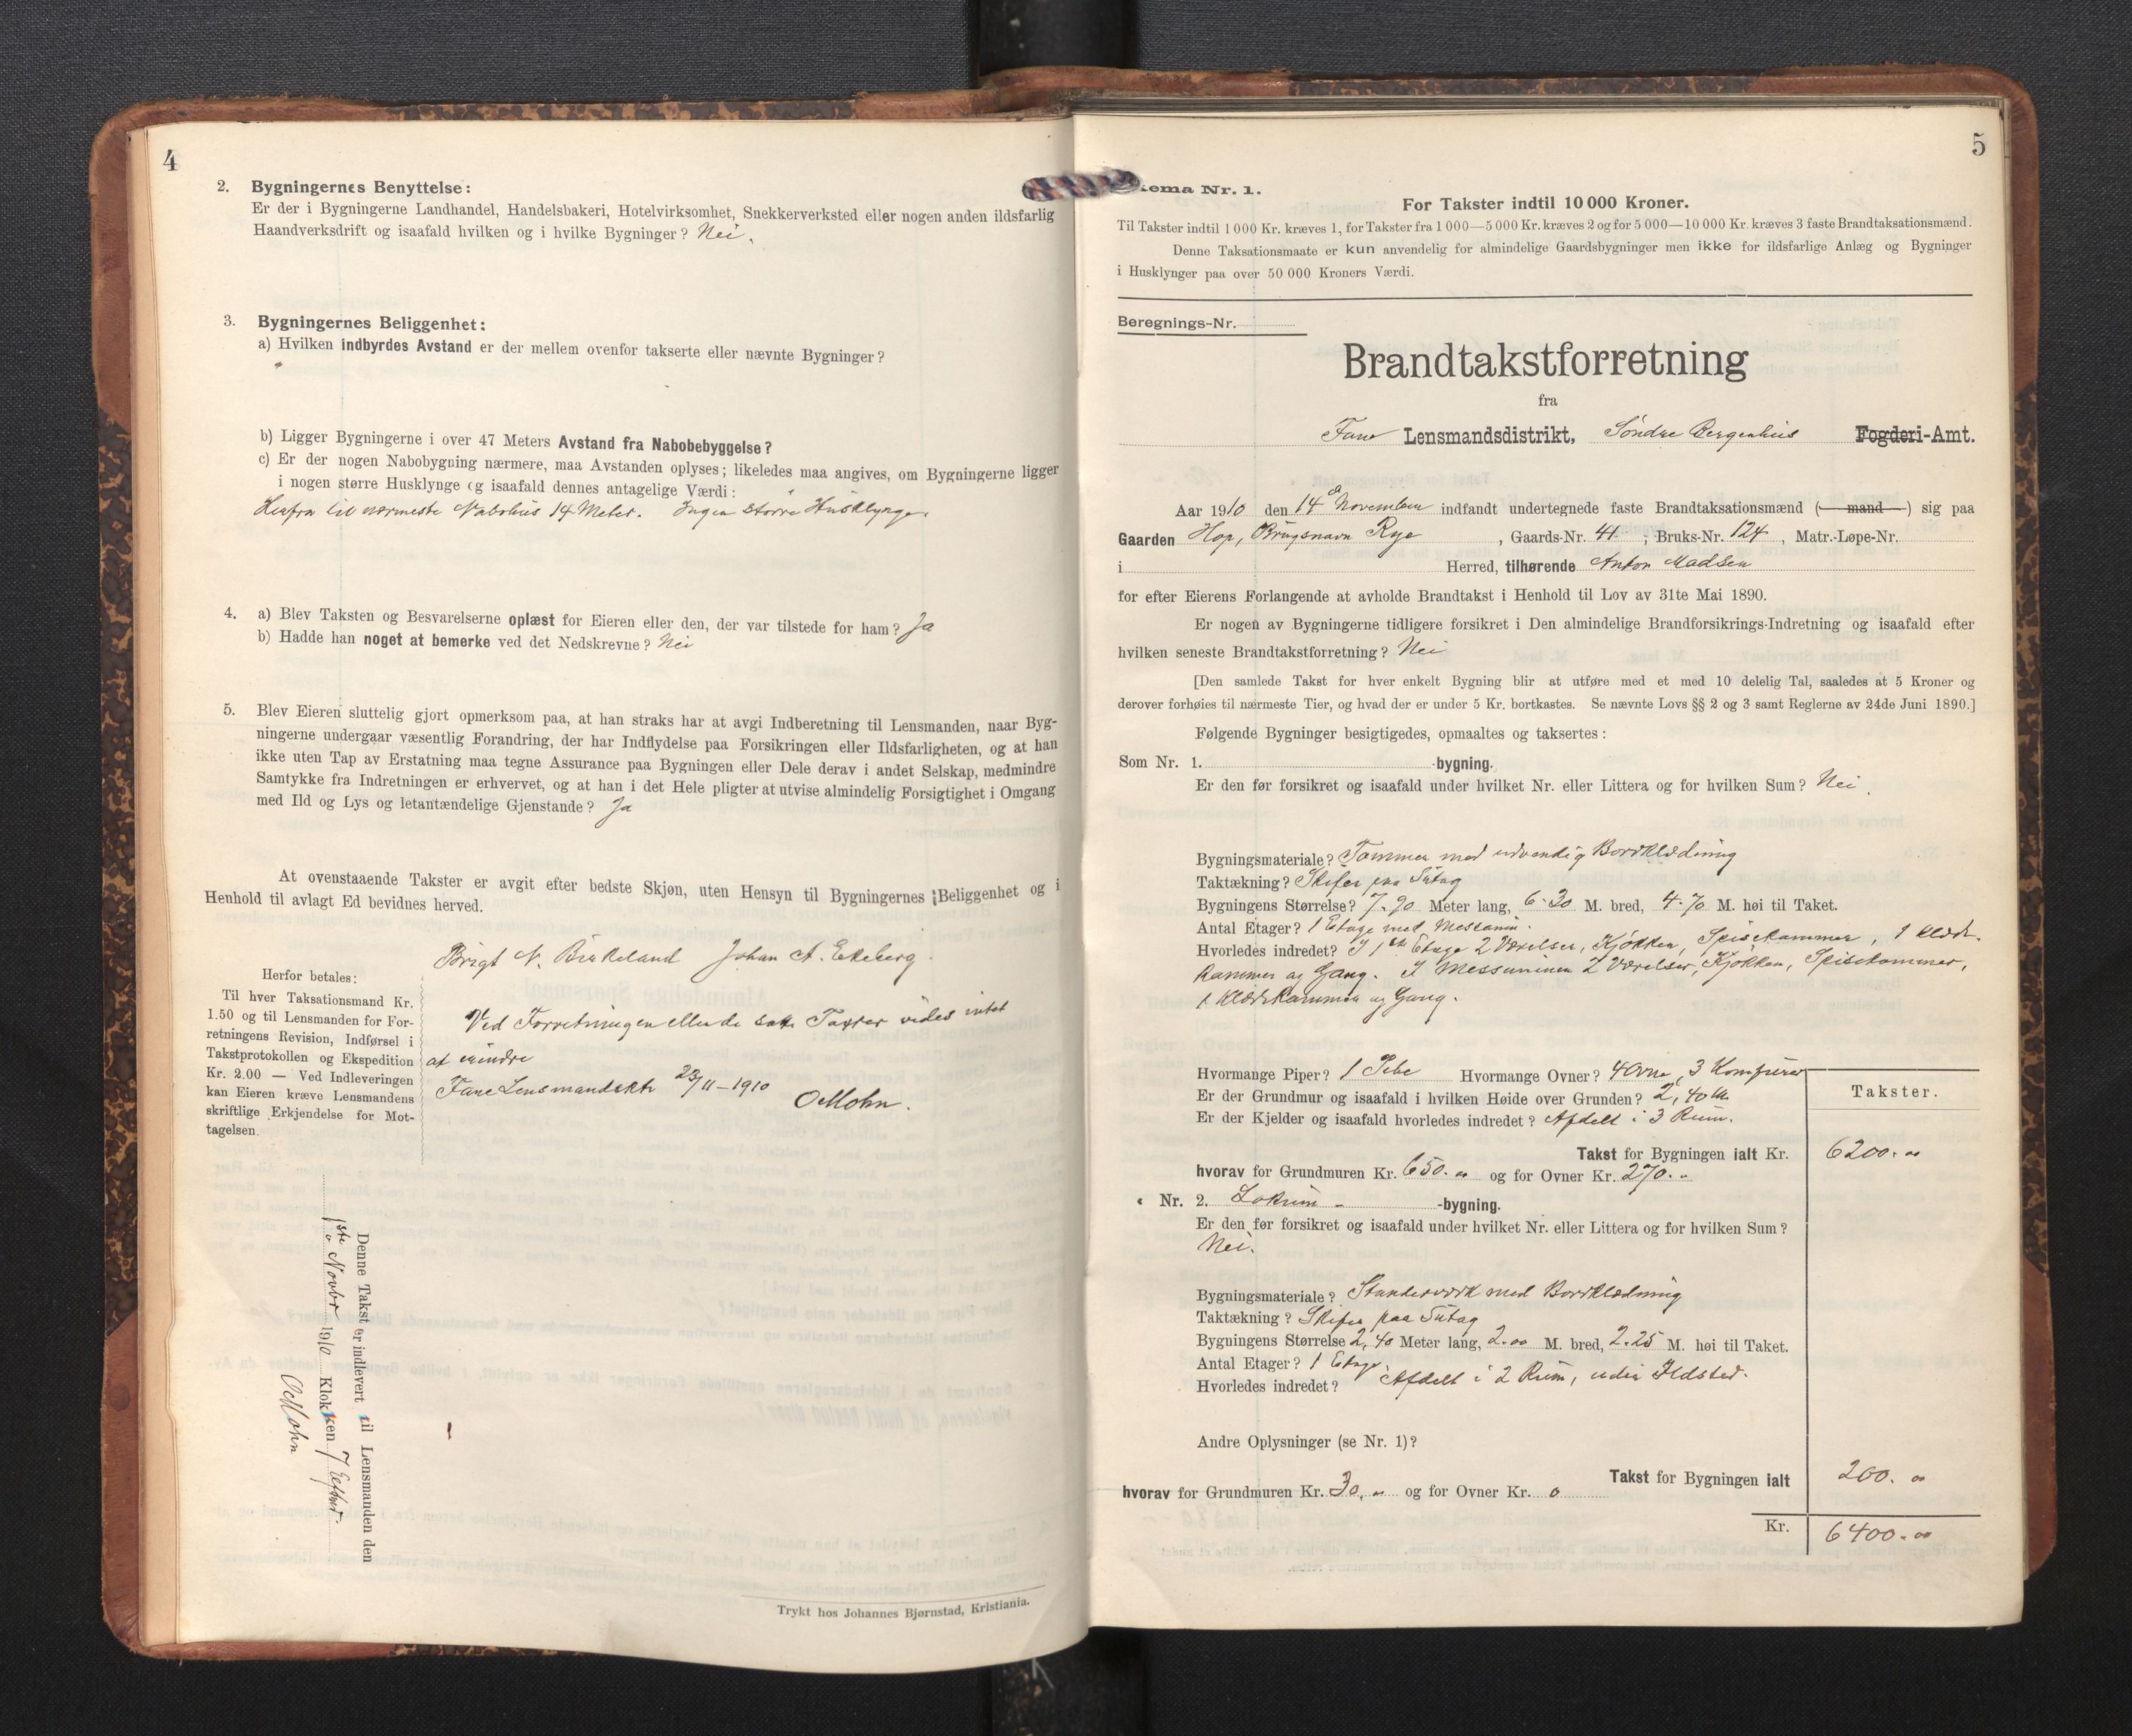 4
2. Bygningernes Benyttelse:
Er der i Bygningerne Landhandel, Handelsbakeri, Hotelvirksomhet, Snekkerverksted eller nogen anden ildsfarlig
Haandverksdrift og isaafald hvilken og i hvilke Bygninger? Nei.
3. Bygningernes Beliggenhet:
a) Hvilken indbyrdes Avstand er der mellem ovenfor takserte eller nævnte Bygninger?
b) Ligger Bygningerne i over 47 Meters Avstand fra Nabobebyggelse?
c) Er der nogen Nabobygning nærmere, maa Avstanden oplyses; likeledes maa angives, om Bygningerne ligger
i nogen større Husklynge og isaafald dennes antagelige Værdi:
Herfra til nærmeste Nabohus 14 Meter. Ingen større Husklynge.
4. a) Blev Taksten og Besvarelserne oplæst for Eieren eller den, der var tilstede for ham? Ja
b) Hadde han noget at bemerke ved det Nedskrevne? Nei
5. Blev Eieren sluttelig gjort opmerksom paa, at han straks har at avgi Indberetning til Lensmanden, naar Byg-
ningerne undergaar væsentlig Forandring, der har Indflydelse paa Forsikringen eller Ildsfarligheten, og at han
ikke uten Tap av Erstatning maa tegne Assurance paa Bygningen eller Dele derav i andet Selskap, medmindre
Samtykke fra Indretningen er erhvervet, og at han i det Hele pligter at utvise almindelig Forsigtighet i Omgang
med Ild og Lys og letantændelige Gjenstande? Ja
At ovenstaaende Takster er avgit efter bedste Skjøn, uten Hensyn til Bygningernes Beliggenhet og i
Henhold til avlagt Ed bevidnes herved.
Brigt N. Birkeland Johan A. Ekeberg.
Herfor betales:
Til hver Taksationsmand Kr.
1.50 og til Lensmanden for For-
retningens Revision, Indførsel i
Takstprotokollen og Ekspedition
Kr. 2.00 — Ved Indleveringen
kan Eieren kræve Lensmandens
skriftlige Erkjendelse for Mot-
tagelsen.
Ved Forretningen eller de satte Taxter vides intet
at erindre
Fane Lensmandsktr 23/11-1910
O Mohn.
Denne Takst er indlevert til Lensmanden den
Novbr 1910 Klokken 7 Efterm.
O Mohn
Trykt hos Johannes Bjørnstad, Kristiania.
5
Nr. 1.
For Takster indtil 10 000 Kroner.
Til Takster indtil 1 000 Kr. kræves 1, for Takster fra 1 000—5 000 Kr. kræves 2 og for 5 000—10 000 Kr. kræves 3 faste Brandtaksationsmænd.
Denne Taksationsmaate er kun anvendelig for almindelige Gaardsbygninger men ikke for ildsfarlige Anlæg og Bygninger
i Husklynger paa over 50 000 Kroners Værdi.
Beregnings-Nr.
Brandtakstforretning
fra
Fane Lensmandsdistrikt, Søndre Bergenhus Fogderi-Amt.
Aar 1910 den 14 d November indfandt undertegnede faste Brandtaksationsmænd (mand) sig paa
Gaarden Hop, Brugsnavn Rye, Gaards-Nr. 41; Bruks-Nr. 124, Matr.-Løpe-Nr.
i Herred, tilhørende Anton Madsen
for efter Eierens Forlangende at avholde Brandtakst i Henhold til Lov av 31te Mai 1890.
Er nogen av Bygningerne tidligere forsikret i Den almindelige Brandforsikrings-Indretning og isaafald efter
hvilken seneste Brandtakstforretning? Nei
[Den samlede Takst for hver enkelt Bygning blir at utføre med et med 10 delelig Tal, saaledes at 5 Kroner og
derover forhøies til nærmeste Tier, og hvad der er under 5 Kr. bortkastes. Se nævnte Lovs §§ 2 og 3 samt Reglerne av 24de Juni 1890.]
Følgende Bygninger besigtigedes, opmaaltes og taksertes:
Som Nr. 1. -bygning.
Er den før forsikret og isaafald under hvilket Nr. eller Littera og for hvilken Sum? Nei.
Bygningsmateriale? Tømmer med udvendig Bordklædning
Taktækning? Skifer paa Sutag
Bygningens Størrelse? 7.90 Meter lang, 6.30 M. bred, 4.70 M. høi til Taket.
Antal Etager? 1 Etage med Messanin.
Hvorledes indret? I 1ste Etage 2 Værelser, Kjøkken, Spisekammer, 1 Klæde-
kammer og Gang. I Messaninen 2 Værelser, Kjøkken, Spisekammer,
1 Klædekammer og Gang.
Hvormange Piper? 1 Pibe Hvormange Ovner? 4 Ovne, 3 Komfurer
Er der Grundmur og isaafald i hvilken Høide over Grunden? 2,40 M.
Er der Kjelder og isaafald hvorledes indredet? Afdelt i 3 Rum.
Takster.
Takst for Bygningen ialt Kr. 6200.00
hvorav for Grundmuren Kr. 650.00 og for Ovner Kr. 270.-
« Nr. 2. Lokum- -bygning.
Er den før forsikret og isaafald under hvilket Nr. eller Littera og for hvilken Sum?
Nei.
Bygningsmateriale? Standerværk med Bordklædning
Taktækning? Skifer paa Sutag
Bygningens Størrelse 2,40 Meter lang, 2.00 M. bred, 2.25 M. høi til Taket.
Antal Etager? 1 Etage.
Hvorledes indredet? Afdelt i 2 Rum, uden Ildsted.
Andre Oplysninger (se Nr. 1)?
Takst for Bygningen ialt 200.00
hvorav for Grundmuren Kr. 30,00 og for Ovner Kr. 0
Kr. 6400.00